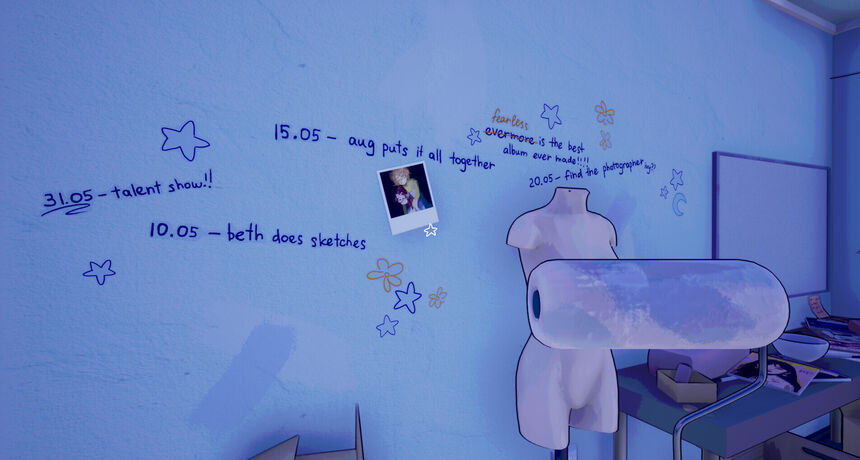 31.05 - talent show!!
10.05 - beth does sketches
15.05 - aug puts it all together
fearless
evermore is the best
album ever made!!!!
20.05 - find the photographer